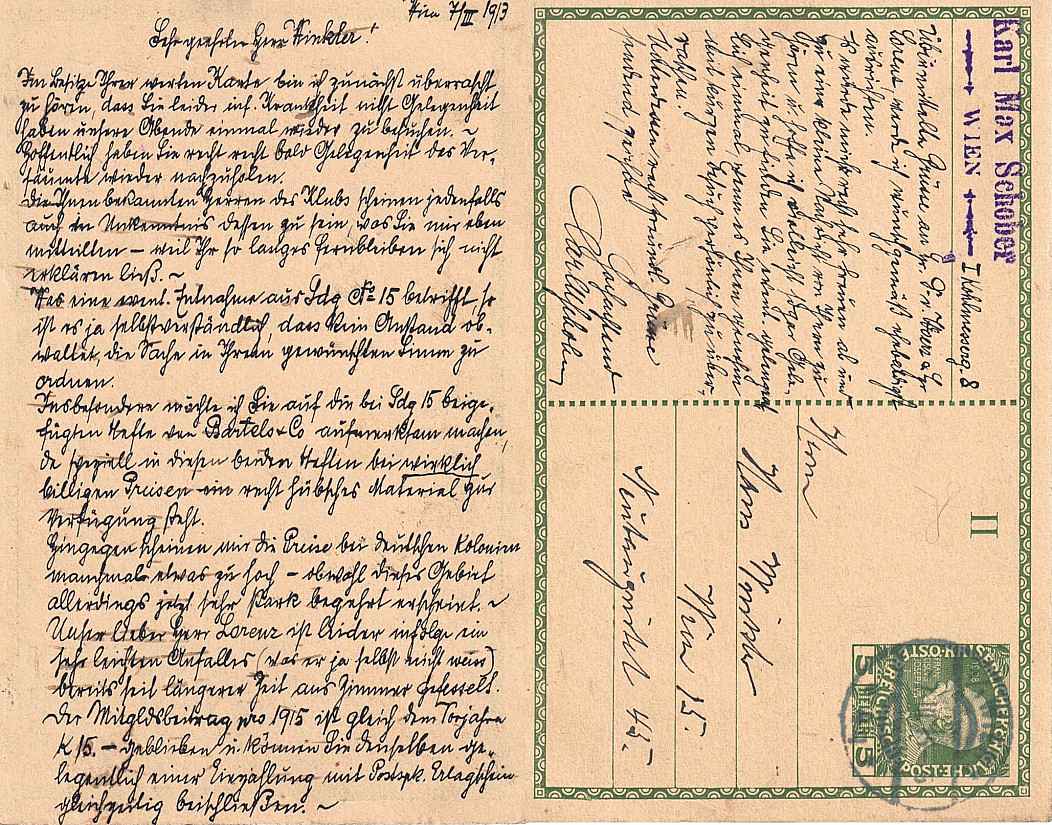 Wien 7/III 1913
Sehr geehrter Herr Winkler!
Im Besitze Ihrer werten Karte bin ich zunächst überrascht
zu hören, dass Sie leider inf. Krankheit nicht Gelegenheit
haben unsere Abende einmal wieder zu besuchen. ~
Hoffentlich haben Sie recht recht bald Gelegenheit das Ver-
säumte wieder nachzuholen.
Die Ihnen bekannten Herren des Klubs scheinen jedenfalls
auch in Unkenntnis dessen zu sein, was Sie mir eben
mitteilten – weil Ihr so langes Fernbleiben sich nicht
erklären ließ. ~
Was eine event. Entnahme aus Sdg № 15 betrifft, so
ist es ja selbstverständlich, dass kein Anstand ob-
waltet, die Sache in Ihrem gewünschten Sinne zu
ordnen.
Insbesondere möchte ich Sie auf die bei Sdg 15 beige-
fügten Hefte von Bartels & Co aufmerksam machen,
da speziell in diesen beiden Heften bei wirklich
billigen Preisen ein recht hübsches Material zur
Verfügung steht.
Hingegen scheinen mir die Preise bei deutschen Kolonien
manchmal etwas zu hoch – obwohl dieses Gebiet
allerdings jetzt sehr stark begehrt erscheint. ~
Unser lieber Herr Lorenz ist leider infolge ein
sehr leichten Anfalles (was er ja selbst nicht weiss)
bereits seit längerer Zeit ans Zimmer gefesselt.
Der Mitgldsbeitrag pro 1915 ist gleich dem Vorjahre
K 15.– geblieben u. können Sie denselben ge-
legentlich einer Einzahlung mit Postspk. Erlagschein
gleichzeitig beischließen. ~
Karl Max Schober
WIEN
I Kohlmesserg. 8
Grüße an H. Dr.
Lorenz werde ich wunschgemäß ehebaldigst
ausrichten.
Es würde mich recht sehr freuen ab und
zu eine kleine Nachricht von Ihnen zu
hören u. hoffe ich vielleicht sogar Gele-
genheit zu finden Sie event. gelegent-
lich einmal, wenn es Ihnen genehm
mit kurzem Besuch persönlich zu über-
raschen.
Unterdessen recht freundl. Grüße
Hochachtend
Karl Schober
Herrn
Hans Winkler
Wien 15.
Neubaugürtel 45.
II
5 HELLER 5